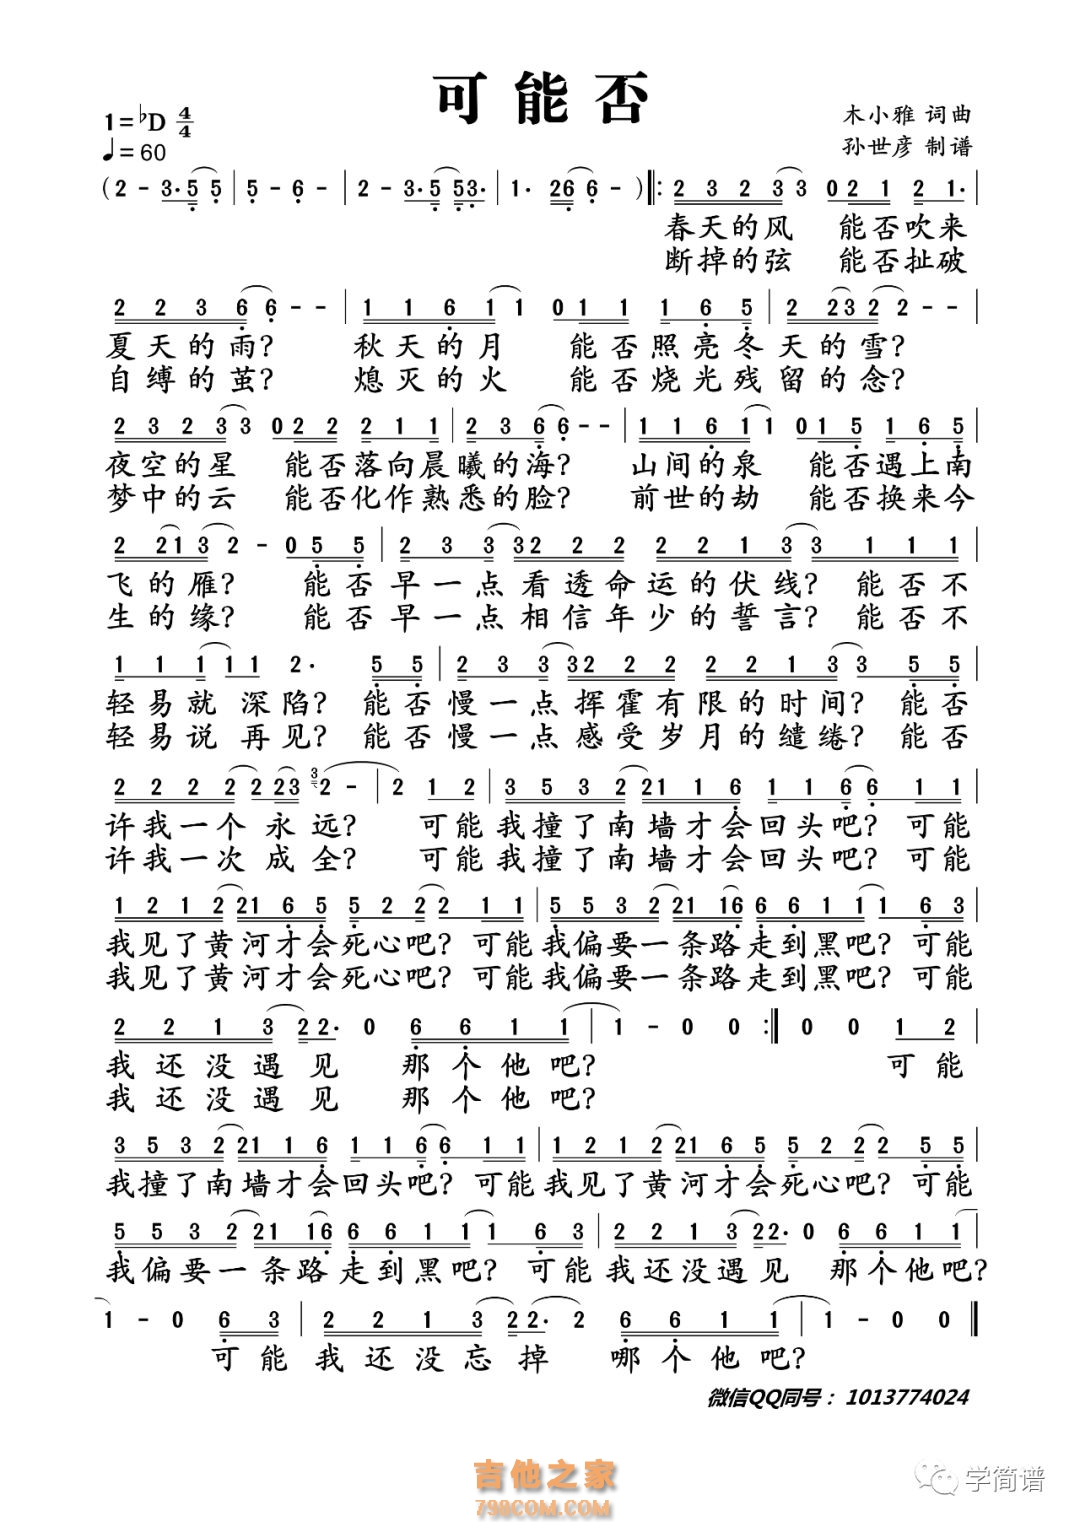 可能否
1=♭D 4/4
♩=60
木小雅 词曲
孙世彦 制谱
(2 - 3·5 5 | 5 - 6 - | 2 - 3·5 53· | 1· 26 6 - ) ‖: 2 3 2 3 3 0 2 1 2 1· |
春天的风 能否吹来
断掉的弦 能否扯破
2 2 3 6 6 - - | 1 1 6 1 1 0 1 1 1 6 5 | 2 23 2 2 - - |
夏天的雨? 秋天的月 能否照亮冬天的雪?
自缚的茧? 熄灭的火 能否烧光残留的念?
2 3 2 3 3 0 2 2 2 1 1 | 2 3 6 6 - - | 1 1 6 1 1 0 1 5 1 6 5 |
夜空的星 能否落向晨曦的海? 山间的泉 能否遇上南
梦中的云 能否化作熟悉的脸? 前世的劫 能否换来今
2 21 3 2 - 0 5 5 | 2 3 3 32 2 2 2 2 1 3 3 1 1 1 |
飞的雁? 能否早一点看透命运的伏线? 能否不
生的缘? 能否早一点相信年少的誓言? 能否不
1 1 1 1 1 2· 5 5 | 2 3 3 32 2 2 2 2 1 3 3 5 5 |
轻易就深陷? 能否慢一点挥霍有限的时间? 能否
轻易说再见? 能否慢一点感受岁月的缱绻? 能否
2 2 2 2 2 23 3 2 - | 2 1 2 | 3 5 3 2 21 1 6 1 1 6 6 1 1 |
许我一个永远? 可能我撞了南墙才会回头吧? 可能
许我一次成全? 可能我撞了南墙才会回头吧? 可能
1 2 1 2 21 6 5 5 2 2 2 1 1 | 5 5 3 2 21 16 6 6 1 1 1 6 3 |
我见了黄河才会死心吧? 可能我偏要一条路走到黑吧? 可能
我见了黄河才会死心吧? 可能我偏要一条路走到黑吧? 可能
2 2 1 3 22· 0 6 6 1 1 | 1 - 0 0 :‖ 0 0 1 2
我还没遇见 那个他吧? 可能
我还没遇见 那个他吧?
3 5 3 2 21 1 6 1 1 6 6 1 1 | 1 2 1 2 21 6 5 5 2 2 2 5 5
我撞了南墙才会回头吧? 可能我见了黄河才会死心吧? 可能
5 5 3 2 21 16 6 6 1 1 1 6 3 | 2 2 1 3 22· 0 6 6 1 1
我偏要一条路走到黑吧? 可能我还没遇见 那个他吧?
1 - 0 6 3 | 2 2 1 3 22· 2 6 6 1 1 | 1 - 0 0 ‖
可能 我还没忘掉 哪个他吧?
微信QQ同号：1013774024
吉他之家
798COM.COM
学简谱